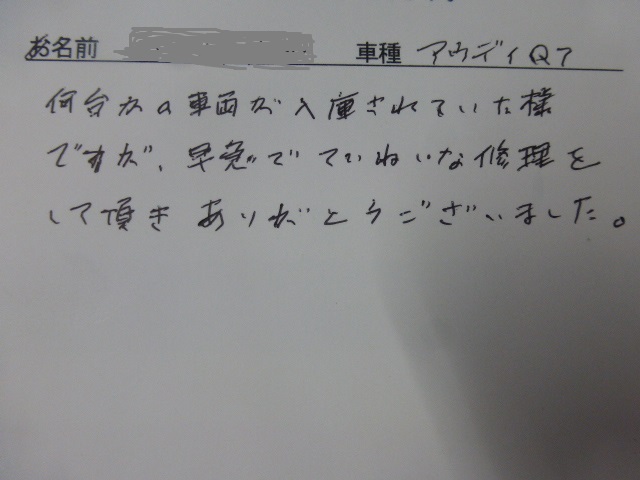 お名前 車種 アウディQ7
何台かの車両が入庫されていた様
ですが、早急でていねいな修理を
して頂きありがとうございました。